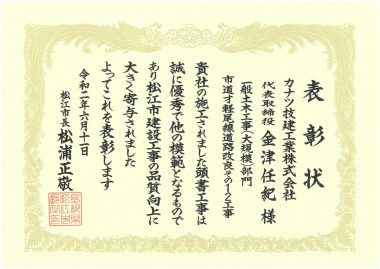 表彰状
カナツ技建工業株式会社
代表取締役 金津任紀 様
一般土木工事(大規模)部門
市道才軽尾線道路改良その1-2工事
貴社の施工されました頭書工事は
誠に優秀で他の模範となるもので
あり松江市建設工事の品質向上に
大きく寄与されました
よってこれを表彰します
令和二年六月十一日
松江市長 松浦正敬